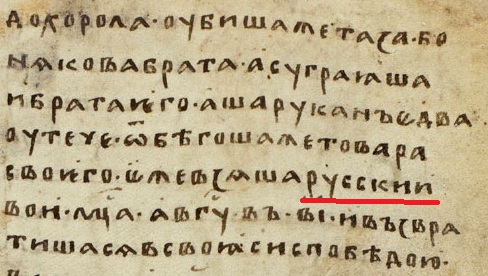 дохорола·оубишажетаꙁа·бо
нѧковабрата·асуграꙗша
ибратаѥго·ашаруканъєдва·
оутече·ѿбѣгошажетовара
своѥго·ѥжевꙁѧшарусскии
вои·мц҃а·авгу·въ·в҃ı·ивъꙁвра
тишасѧвсвоꙗсиспобѣдою·